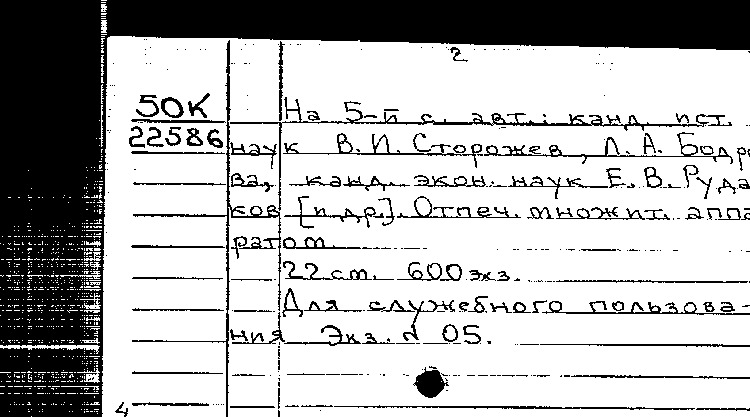 2
50К
22586
На 5-й с. авт.: канд. ист.
наук В. И. Сторожев, Л. А. Бодро
ва, канд. экон. наук Е. В. Руда
ков [и др.]. Отпеч. множит. аппа
ратом.
22 ст. 600 экз.
Для служебного пользова-
ния Экз. № 05.
4